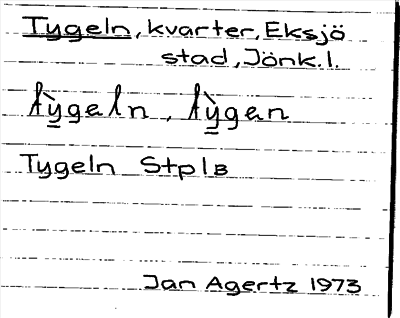 Tygeln, kvarter, Eksjö
stad, Jönk. l.
tỳ̱geln, tỳ̱gen
Tygeln Stplb
Jan Agertz 1973